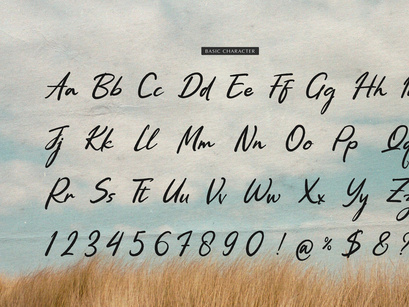 BASIC CHARACTER
Aa Bb Cc Dd Ee Ff Gg Hh
Jj Kk Ll Mm Nn Oo Pp Qq
Rr Ss Tt Uu Vv Ww Xx Yy Zz
1 2 3 4 5 6 7 8 9 0 ! @ % $ & ?